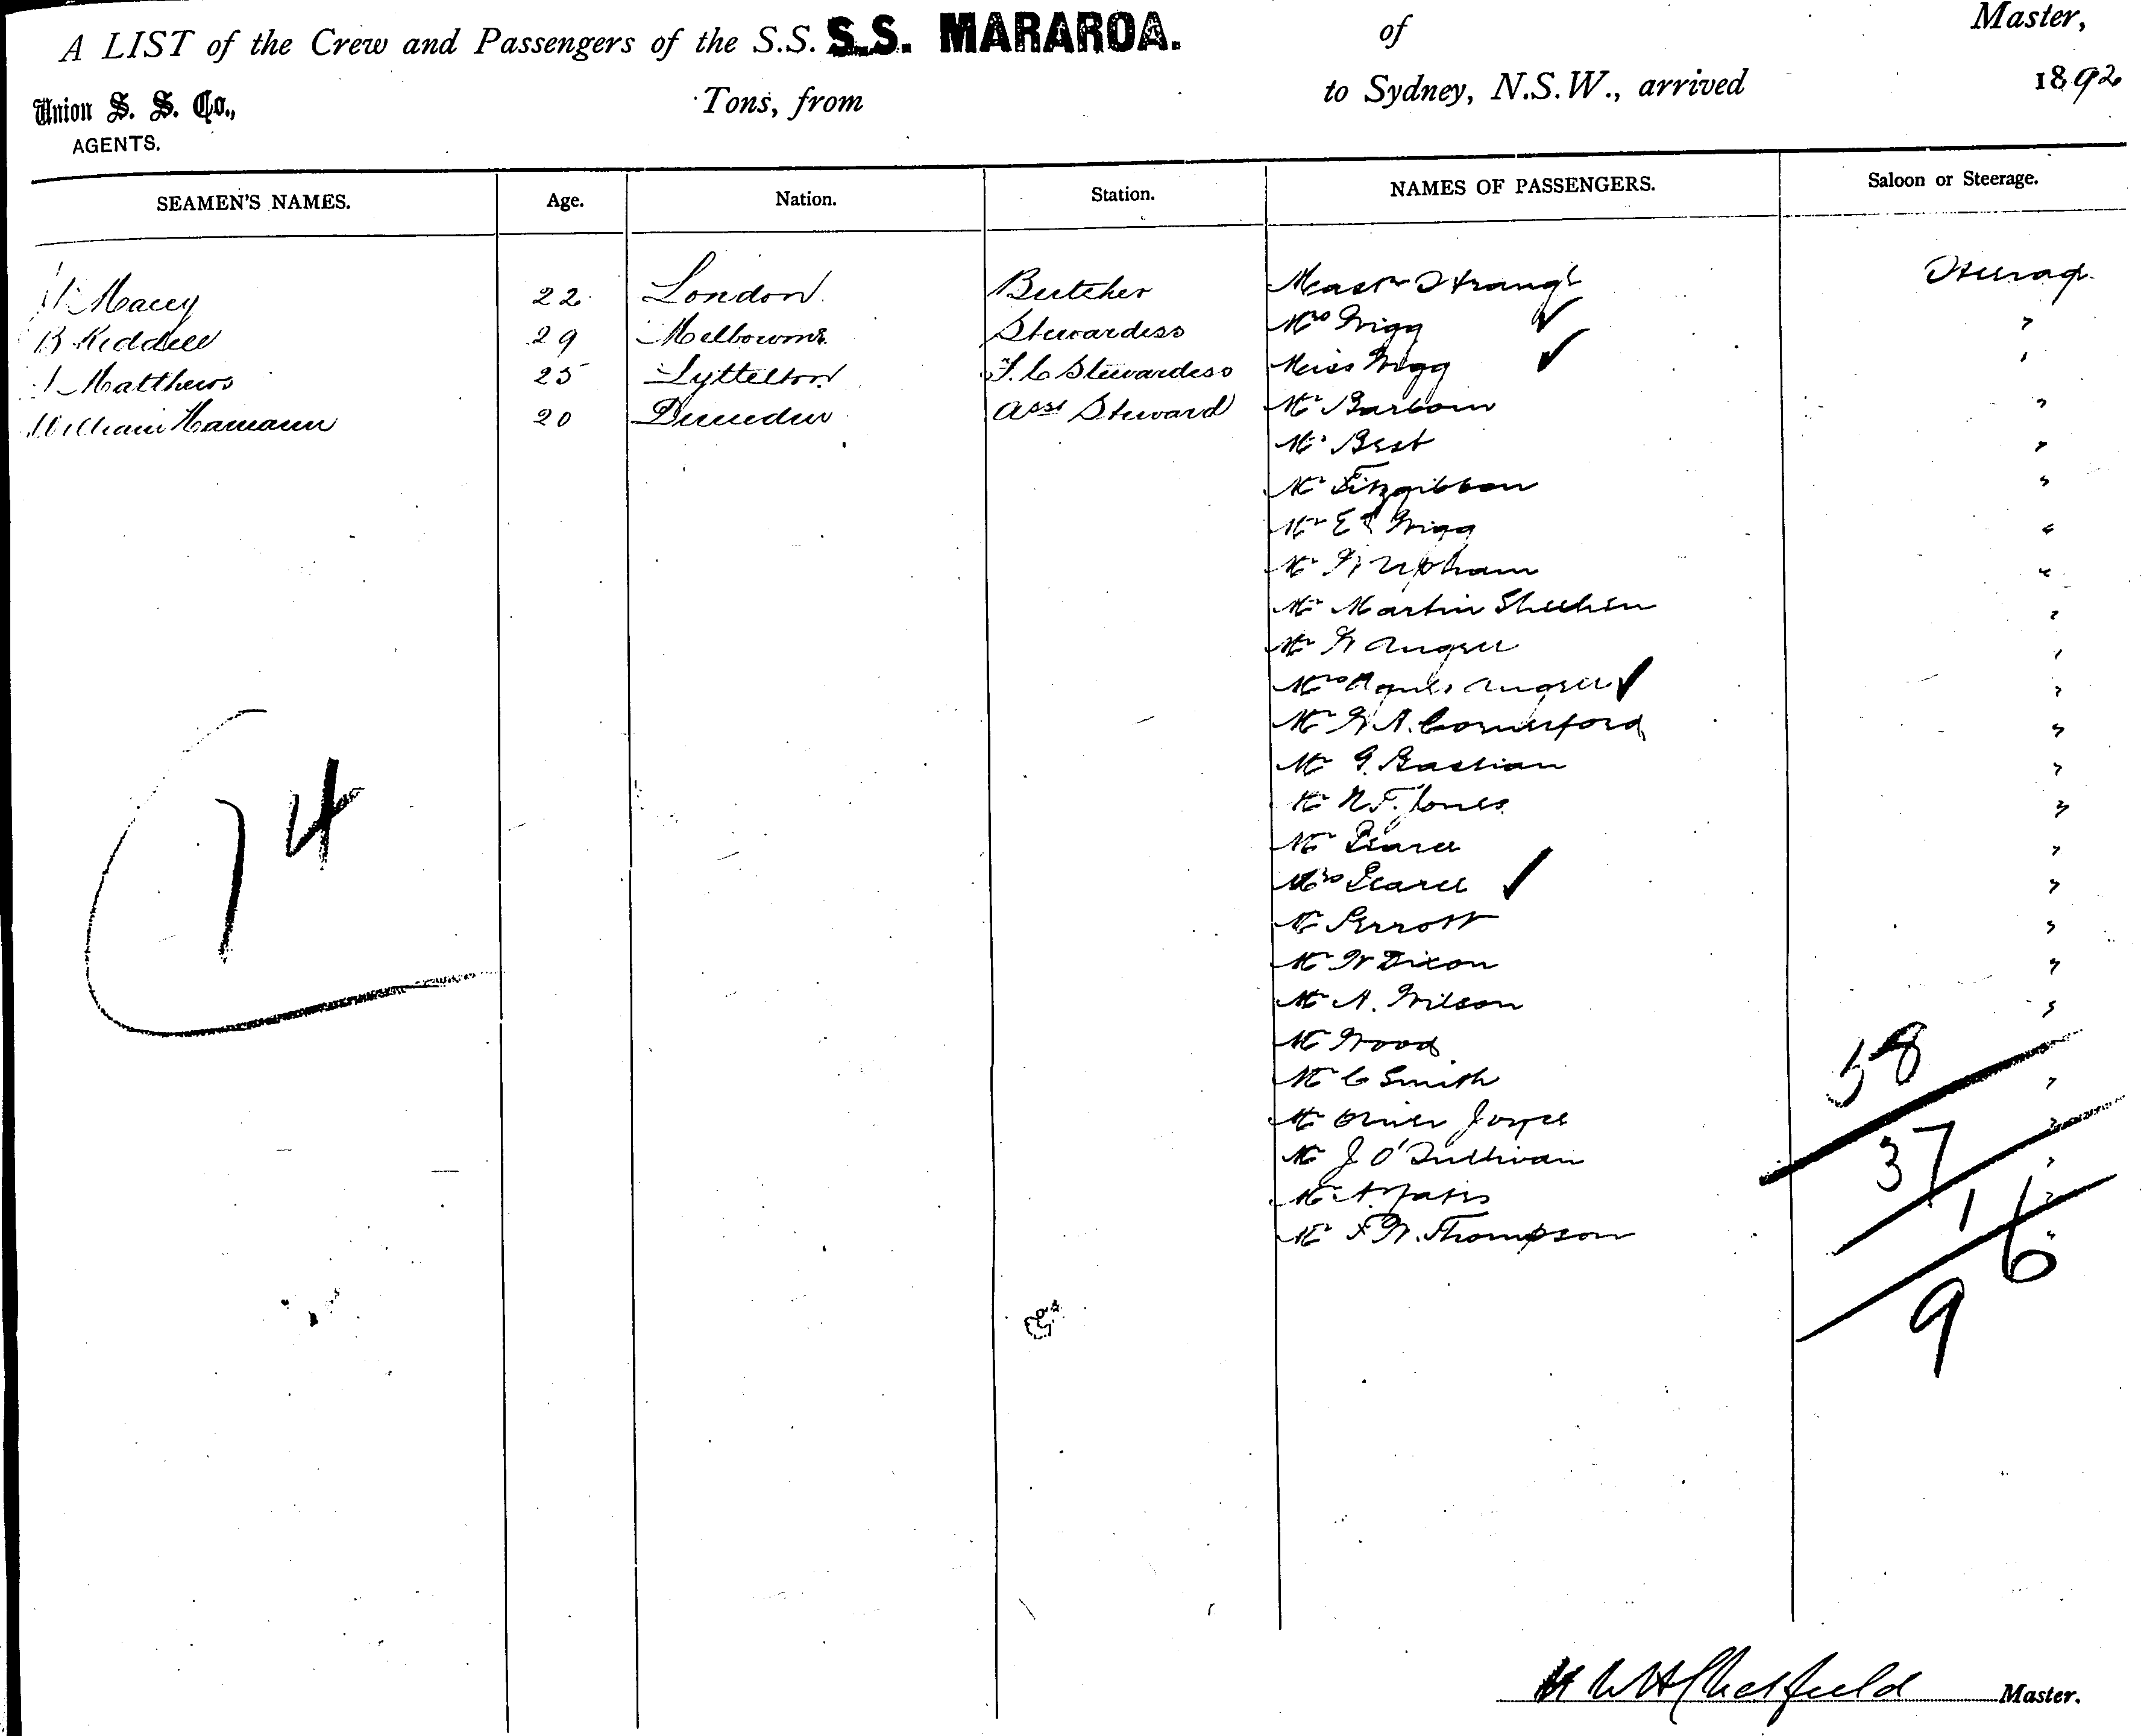 A LIST of the Crew and Passengers of the S.S. S.S. MARAROA. of Master,
Union S. S. Co., Tons, from to Sydney, N.S.W., arrived 1892
AGENTS.
SEAMEN'S NAMES. Age. Nation. Station. NAMES OF PASSENGERS. Saloon or Steerage.
Macey 22 London Butcher Mastr Strange Steerage
B Kiddell 29 Melbourne Stewardess Mrs Grigg "
Matthews 25 Lyttelton F.C Stewardess Miss Grigg "
William Hamann 20 Dunedin Asst Steward Mr Barbour "
Mr Best "
Mr Fitzgibbon "
Mr E Grigg "
Mr W Upham "
Mr Martin Sheehen "
Mr W "
Mrs Agnes "
Mr W A. Comerford "
Mr G. Bastian "
Mr N F. Jones "
Mr Pearce "
Mrs Pearce "
Mr Perrott "
Mr W Dixon "
Mr A. Wilson "
Mr Wood
Mr C Smith "
Mr Oliver Joyce "
Mr J O'Sullivan "
Mr A. Yates "
Mr F W. Thompson "
74
58
37
16
9
Chatfield Master.